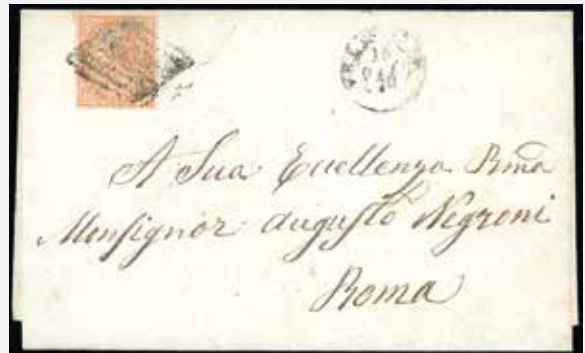 A Sua Eccellenza Rma
Monsignor Augusto Negroni
Roma